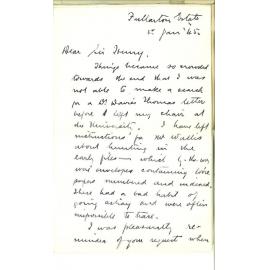 Fullarton Estate
5 Jan '45.
Dear Sir Henry,
Things became so crowded
towards the end that I was
not able to make a search
for a Dr Davies Thomas letter
before I left my chair at
the University. I have left
instructions for Mr Wallis
about hunting in the
early files — which
was envelopes containing loose
papers numbered and indexed.
These had a bad habit of
going astray and were often
impossible to trace.
I was pleasantly re-
minded of your request when